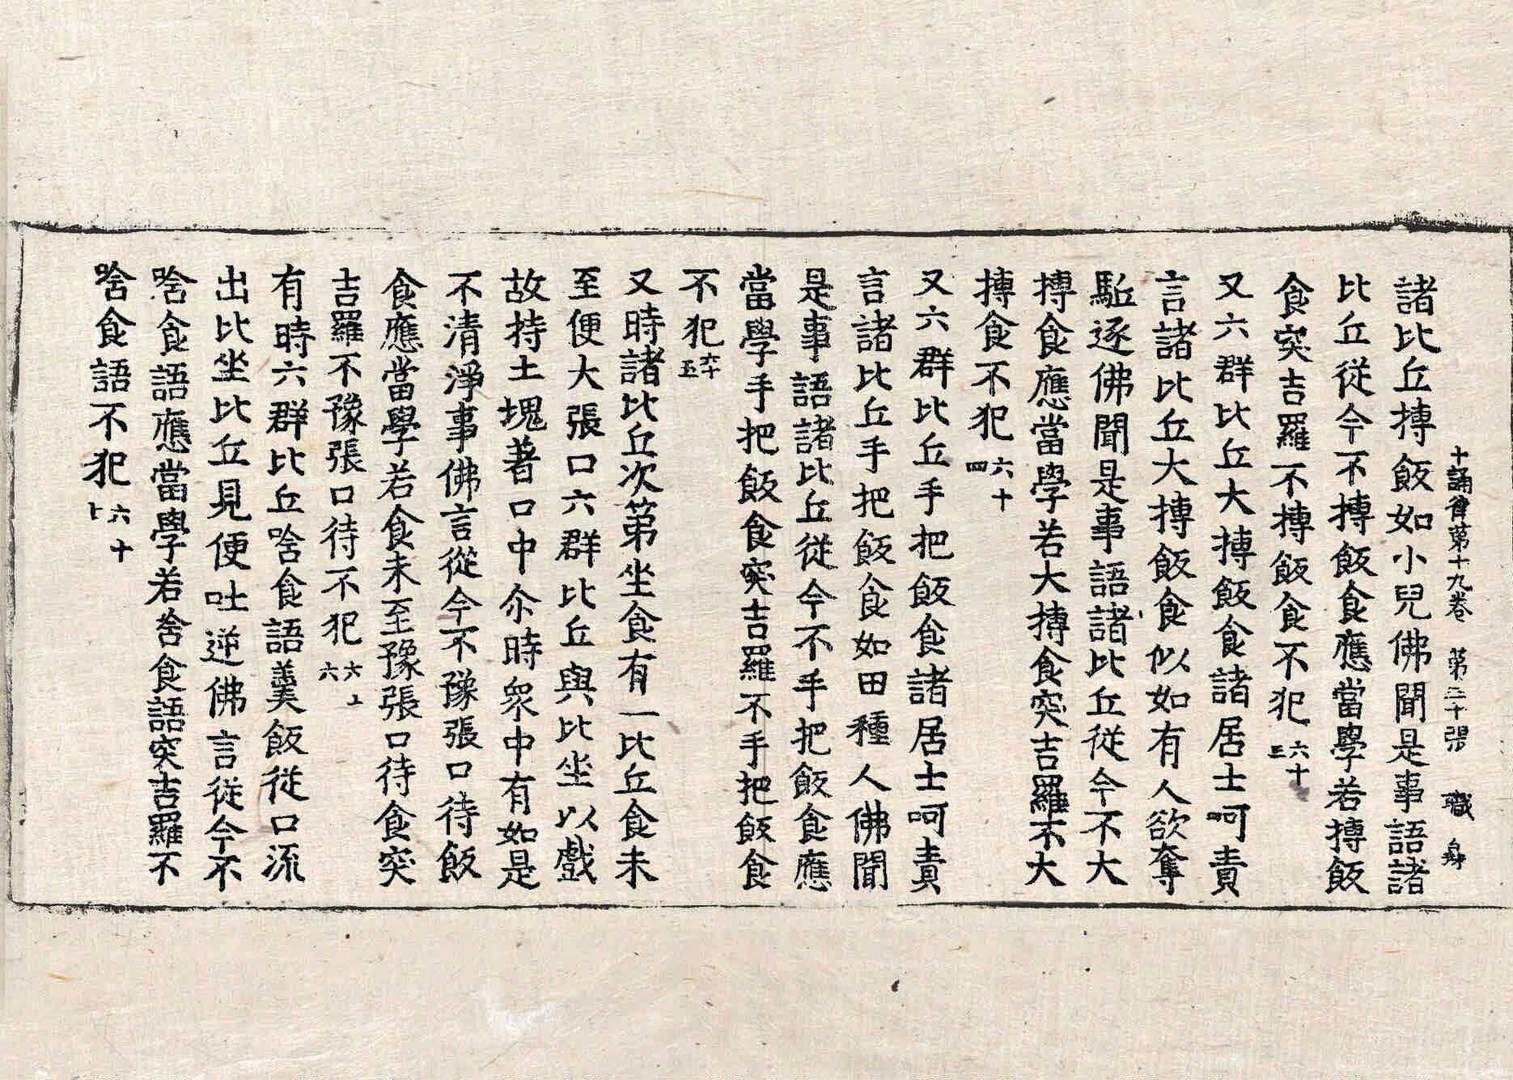 十誦律第十九卷　第二十張　職　身
諸比丘摶飯如小兒佛聞是事語諸
比丘從今不摶飯食應當學若摶飯
食突吉羅不摶飯食不犯六十三
又六群比丘大摶飯食諸居士呵責
言諸比丘大摶飯食似如有人欲奪
駈逐佛聞是事語諸比丘從今不大
摶食應當學若大摶食突吉羅不大
摶食不犯六十四
又六群比丘手把飯食諸居士呵責
言諸比丘手把飯食如田種人佛聞
是事語諸比丘從今不手把飯食應
當學手把飯食突吉羅不手把飯食
不犯六十五
又時諸比丘次第坐食有一比丘食未
至便大張口六群比丘與比坐以戲
故持土塊著口中尒時眾中有如是
不清淨事佛言從今不豫張口待飯
食應當學若食未至豫張口待食突
吉羅不豫張口待不犯六十六
有時六群比丘唅食語羹飯從口流
出比坐比丘見便吐逆佛言從今不
唅食語應當學若唅食語突吉羅不
唅食語不犯六十七